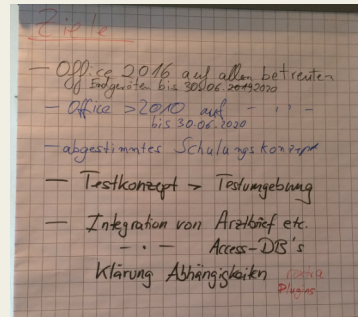 Ziele
- Office 2016 auf allen betreuten
Endgeräten bis 30.06.2020
- Office > 2010 auf - " -
bis 30.06.2020
- abgestimmtes Schulungskonzept
- Testkonzept > Testumgebung
- Integration von Arztbrief etc.
- " - Access-DB's
Klärung Abhängigkeiten
Plugins